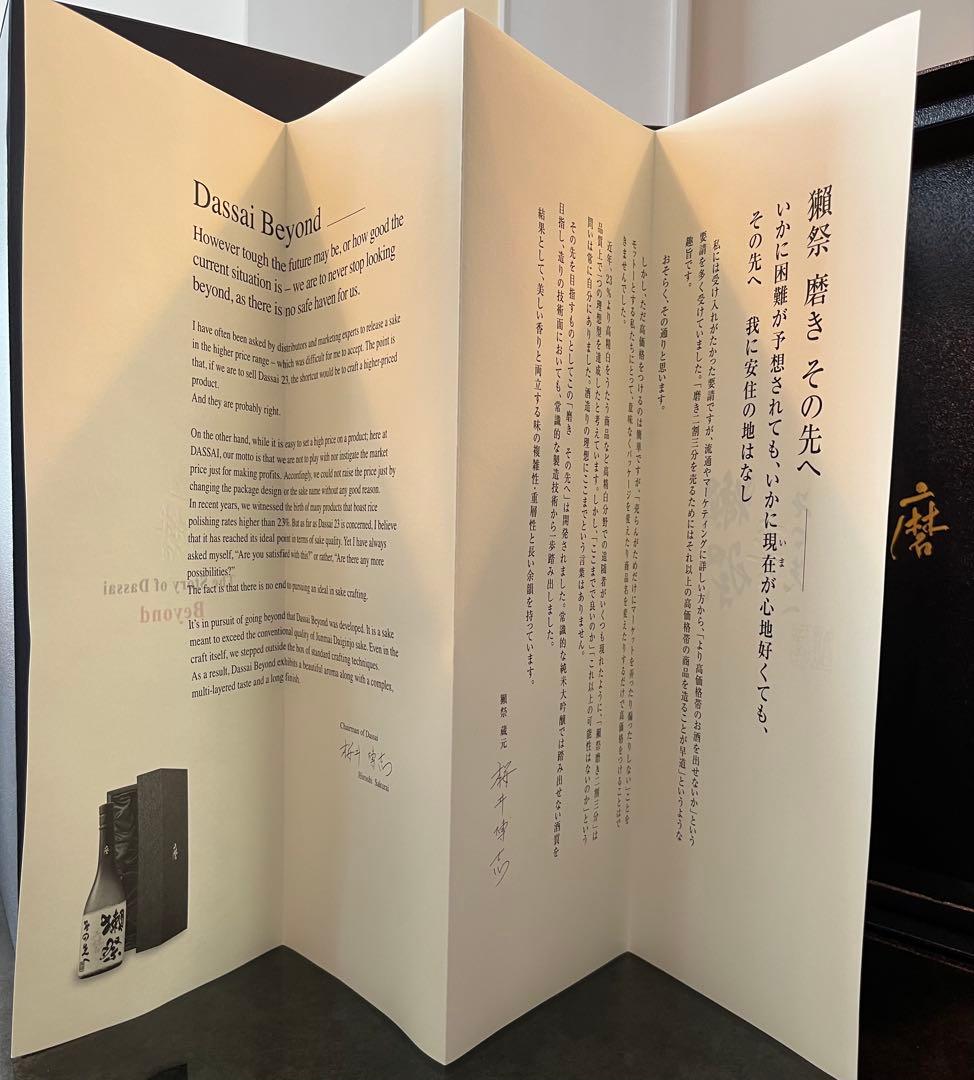 Dassai Beyond
However tough the future may be, or how good the
current situation is – we are to never stop looking
beyond, as there is no safe haven for us.
I have often been asked by distributors and marketing experts to release a sake
in the higher price range – which was difficult for me to accept. The point is
that, if we are to sell Dassai 23, the shortcut would be to craft a higher-priced
product.
And they are probably right.
On the other hand, while it is easy to set a high price on a product; here at
DASSAI, our motto is that we are not to play with nor instigate the market
price just for making profits. Accordingly, we could not raise the price just by
changing the package design or the sake name without any good reason.
In recent years, we witnessed the birth of many products that boast rice
polishing rates higher than 23%. But as far as Dassai 23 is concerned, I believe
that it has reached its ideal point in terms of sake quality. Yet I have always
asked myself, “Are you satisfied with this?” or rather, “Are there any more
possibilities?”
The fact is that there is no end to pursuing an ideal in sake crafting.
It’s in pursuit of going beyond that Dassai Beyond was developed. It is a sake
meant to exceed the conventional quality of Junmai Daiginjo sake. Even in the
craft itself, we stepped outside the box of standard crafting techniques.
As a result, Dassai Beyond exhibits a beautiful aroma along with a complex,
multi-layered taste and a long finish.
Chairman of Dassai
桜井博志
Hiroshi Sakurai
The Story of Dassai
Beyond
獺祭
その先へ
磨
獺祭 磨き その先へ
いかに困難が予想されても、いかに現在が心地好くても、
いま
その先へ 我に安住の地はなし
私には受け入れがたかった要請ですが、流通やマーケティングに詳しい方から、「より高価格帯のお酒を出せないか」という
要請を多く受けていました。「磨き二割三分を売るためにはそれ以上の高価格帯の商品を造ることが早道」というような
趣旨です。
おそらく、その通りと思います。
しかし、ただ高価格をつけるのは簡単ですが、「売らんがためだけにマーケットを弄ったり煽ったりしない」ことを
モットーとする私たちにとって、意味なくパッケージを変えたり商品名を変えたりするだけで高価格をつけることはで
きませんでした。
近年、23％より高精白をうたう商品など高精白分野での追随者がいくつも現れたように、「獺祭磨き二割三分」は
品質上で一つの理想型を達成したと考えています。しかし、「ここまでで良いのか」「これ以上の可能性はないのか」という
問いは常に自分にありました。酒造りの理想にここまでという言葉はありません。
その先を目指すものとしてこの「磨き その先へ」は開発されました。常識的な純米大吟醸では踏み出せない酒質を
目指し、造りの技術面においても、常識的な製造技術から一歩踏み出しました。
結果として、美しい香りと両立する味の複雑性・重層性と長い余韻を持っています。
獺祭 蔵元
桜井博志
磨